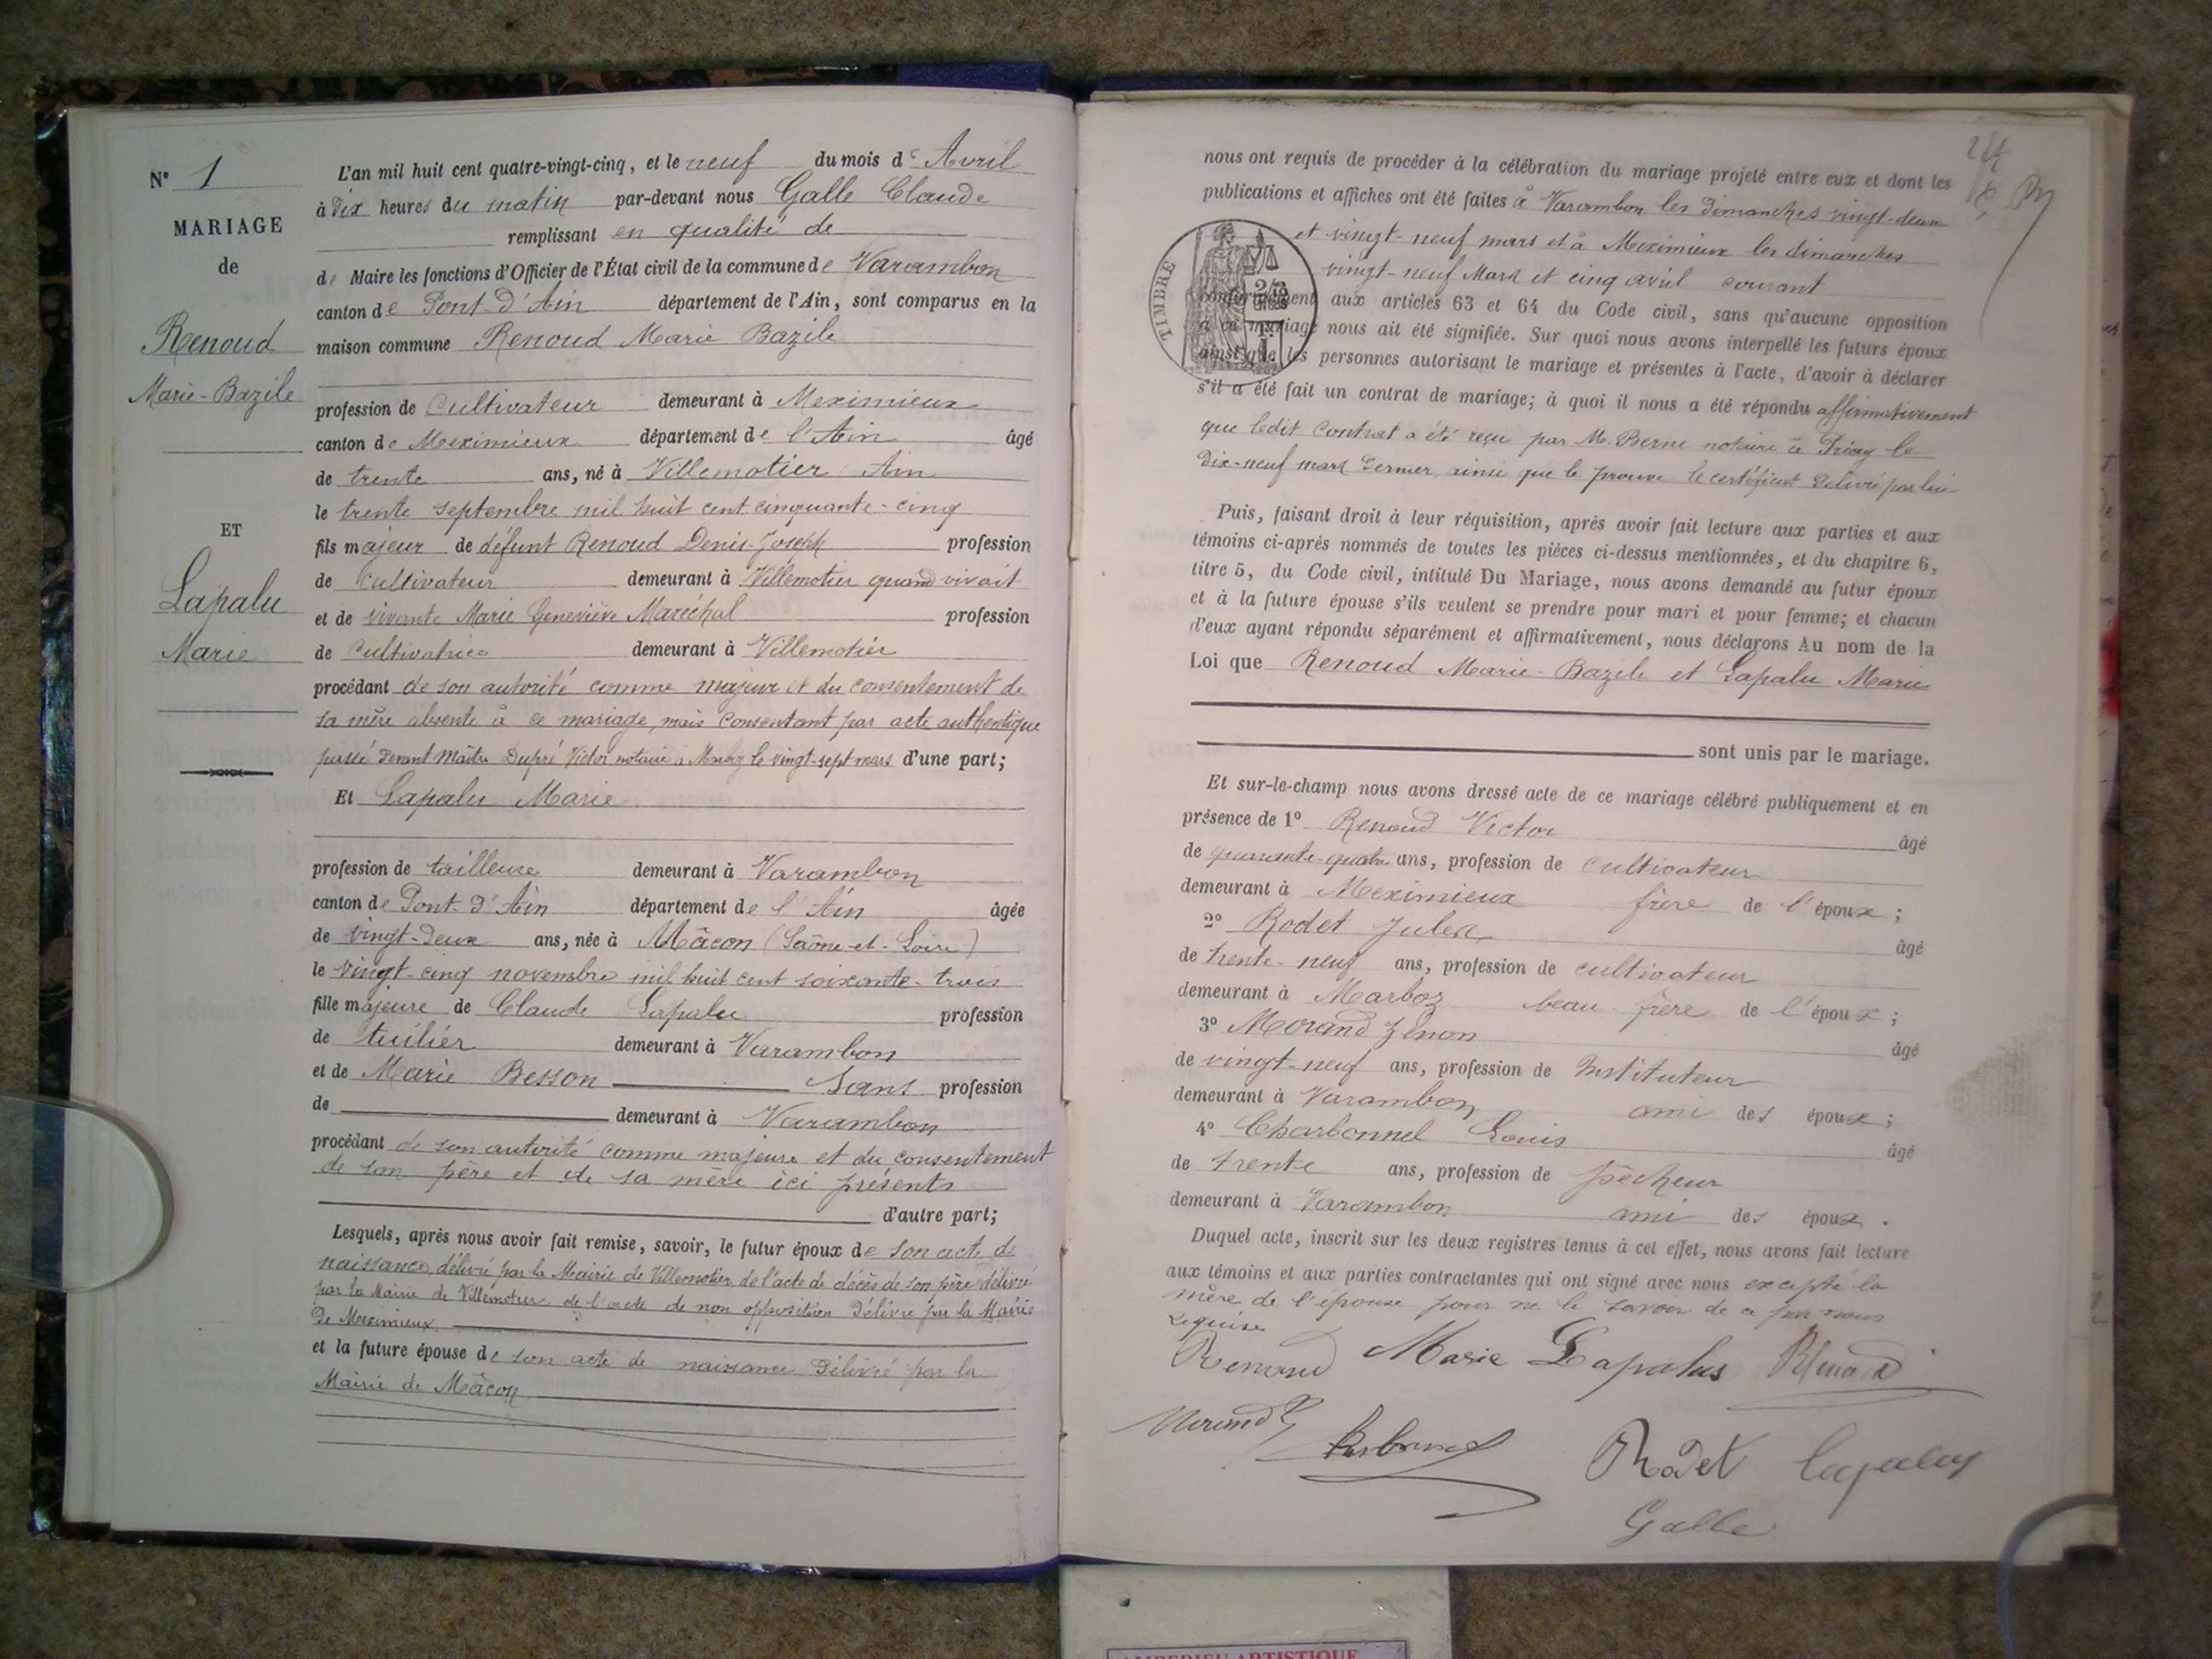 N° 1
MARIAGE
de
Renoud
Marie-Bazile
ET
Lapalu
Marie
L'an mil huit cent quatre-vingt-cinq, et le neuf du mois d' Avril
à dix heures du matin par-devant nous Galle Claude
remplissant en qualité de
de Maire les fonctions d'Officier de l'État civil de la commune de Varambon
canton de Pont-d'Ain département de l'Ain, sont comparus en la
maison commune Renoud Marie Bazile
profession de Cultivateur demeurant à Meximieux
canton de Meximieux département de l'Ain âgé
de trente ans, né à Villemotier Ain
le trente septembre mil huit cent cinquante-cinq
fils majeur de défunt Renoud Denis-Joseph profession
de cultivateur demeurant à Villemotier quand vivait
et de vivante Marie Geneviève Maréchal profession
de Cultivatrice demeurant à Villemotier
procédant de son autorité comme majeur et du consentement de
sa mère absente à ce mariage, mais consentant par acte authentique
passé devant Maître Dupré Victor notaire à Marboz le vingt-sept mars d'une part;
Et Lapalu Marie
profession de tailleuse demeurant à Varambon
canton de Pont-d'Ain département de l'Ain âgée
de vingt-deux ans, née à Mâcon (Saône-et-Loire)
le vingt-cinq novembre mil huit cent soixante-trois
fille majeure de Claude Lapalu profession
de tuilier demeurant à Varambon
et de Marie Besson Sans profession
de demeurant à Varambon
procédant de son autorité comme majeure et du consentement
de son père et de sa mère ici présents
d'autre part;
Lesquels, après nous avoir fait remise, savoir, le futur époux de son acte de
naissance délivré par la Mairie de Villemotier, de l'acte de décès de son père délivré
par la Mairie de Villemotier de l'acte de non opposition délivré par la Mairie
de Meximieux
et la future épouse de son acte de naissance délivré par la
Mairie de Mâcon
nous ont requis de procéder à la célébration du mariage projeté entre eux et dont les
publications et affiches ont été faites à Varambon les dimanches vingt-deux
et vingt-neuf mars et à Meximieux les dimanches
vingt-neuf Mars et cinq avril courant
TIMBRE
conformément aux articles 63 et 64 du Code civil, sans qu'aucune opposition
à ce mariage nous ait été signifiée. Sur quoi nous avons interpellé les futurs époux
ainsi que les personnes autorisant le mariage et présentes à l'acte, d'avoir à déclarer
s'il a été fait un contrat de mariage; à quoi il nous a été répondu affirmativement
que ledit Contrat a été reçu par M. Berne notaire à Priay le
dix-neuf mars dernier, ainsi que le prouve le certificat délivré par lui
Puis, faisant droit à leur réquisition, après avoir fait lecture aux parties et aux
témoins ci-après nommés de toutes les pièces ci-dessus mentionnées, et du chapitre 6,
titre 5, du Code civil, intitulé Du Mariage, nous avons demandé au futur époux
et à la future épouse s'ils veulent se prendre pour mari et pour femme; et chacun
d'eux ayant répondu séparément et affirmativement, nous déclarons Au nom de la
Loi que Renoud Marie-Bazile et Lapalu Marie
sont unis par le mariage.
Et sur-le-champ nous avons dressé acte de ce mariage célébré publiquement et en
présence de 1° Renoud Victor âgé
de quarante-quatre ans, profession de cultivateur
demeurant à Meximieux frère de l'époux;
2° Rodet Jules âgé
de trente-neuf ans, profession de cultivateur
demeurant à Marboz beau-frère de l'époux;
3° Morand Zénon âgé
de vingt-neuf ans, profession de Instituteur
demeurant à Varambon ami des époux;
4° Charbonnel Louis âgé
de trente ans, profession de pêcheur
demeurant à Varambon ami des époux.
Duquel acte, inscrit sur les deux registres tenus à cet effet, nous avons fait lecture
aux témoins et aux parties contractantes qui ont signé avec nous excepté la
mère de l'épouse pour ne le savoir de ce par nous
requise
Renoud Marie Lapalus Renoud
Morand Z Rodet Lapalus
Galle
AMBERIEU ARTISTIQUE